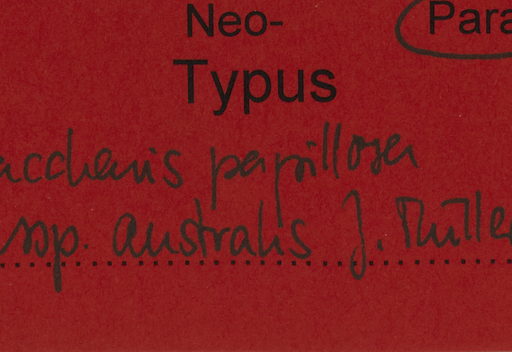 Neo- Para
Typus
accharis papillosa
ssp. australis J. Müller